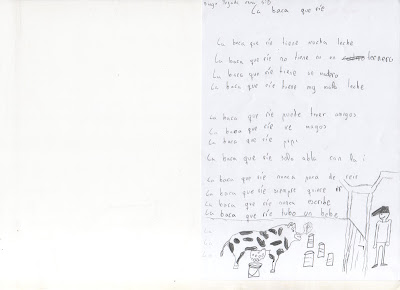 La baca que rie
La baca que rie tiene mucha leche
La baca que rie no tiene ni un
La baca que rie tiene un
La baca que rie tiene my mala leche
La baca que rie puede tener amigos
La baca que rie ve magos
La baca que rie
La baca que rie solo abla con la i
La baca que rie nunca para de reir
La baca que rie siempre quiere ir
La baca que rie nunca escribe
La baca que rie tubo un bebe
La
La
La